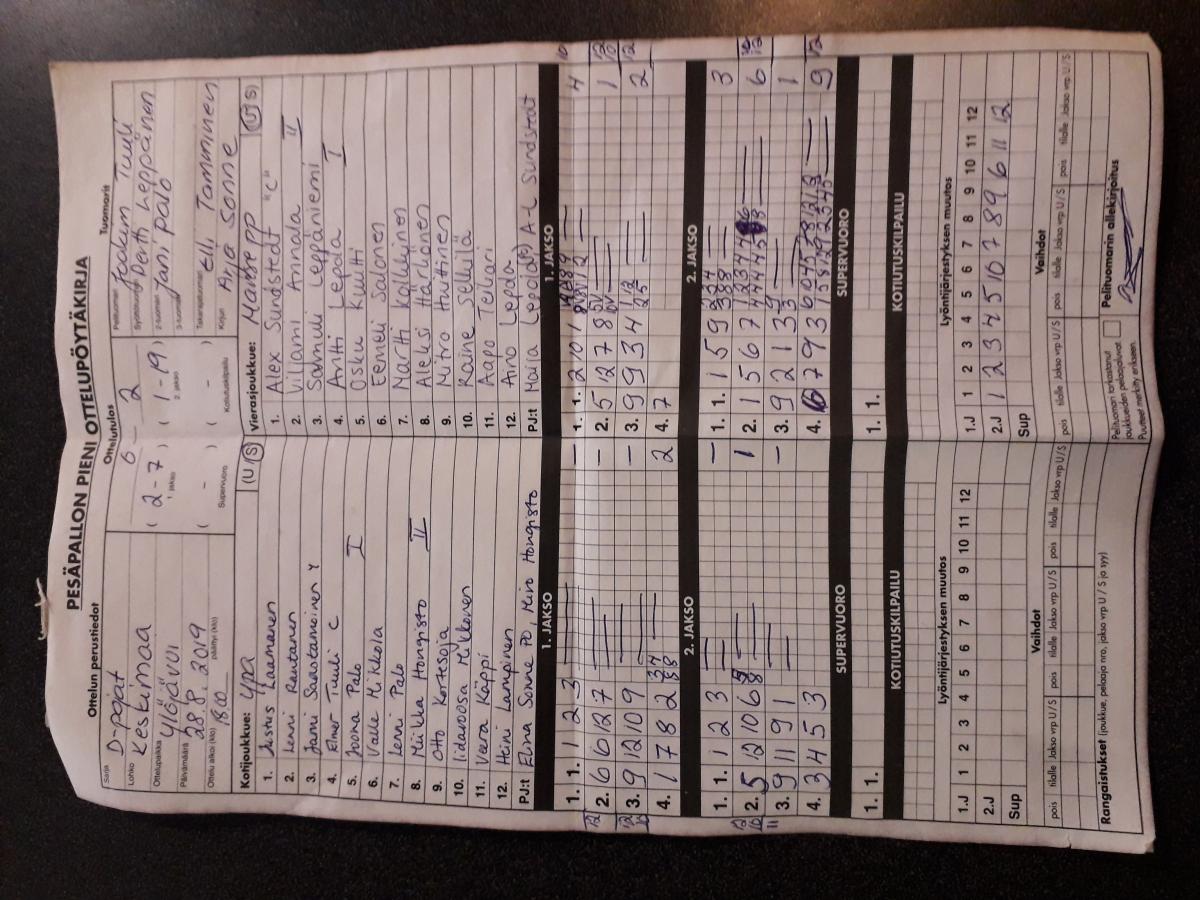 PESÄPALLON PIENI OTTELUPÖYTÄKIRJA
Ottelun perustiedot
Sarja D-pojat
Lohko Keskimaa
Ottelupaikka Ylöjärvi
Päivämäärä 28.8. 2019
Ottelu alkoi (klo) 18.00 päättyi (klo)
Ottelutulos
0 - 2
( 2 - 7 ) ( 1 - 19 )
1. jakso 2. jakso
( - ) ( - )
Supervuoro Kotiutuskilpailu
Tuomarit
Pelituomari Joakim Tuuli
Syöttötuomari Pertti Leppänen
2-tuomari Jani Palo
3-tuomari
Takarajatuomari Elli Tamminen
Kirjuri Arja Sonne
Kotijoukkue: YPA (U/S)
1. Justus Laamanen
2. Lenni Rautanen
3. Jarmi
4. Elmer Tuuli C
5. Joona Palo I
6. Valle Mikkola
7. Lenni Palo
8. Miikka Hongisto II
9. Otto Kortesoja
10. Iidaroosa Mykkänen
11. Veera Käppi
12. Heini Lampinen
PJ:t Elina Sonne PJ, Miro Hongisto
Vierasjoukkue: ManRepp (U/S)
1. Alex Sundstedt "C"
2. Viljami Annala II
3. Samuli Leppäniemi
4. Antti Lepola I
5. Osku Kuitti
6. Eemeli Salonen
7. Martti Kolkkinen
8. Aleksi Härkönen
9. Nitro Huttinen
10. Raine Sellkilä
11. Aapo Teikari
12. Aino Lepola
PJ:t Maila Lepola A-L Sundstedt
1. JAKSO 1. JAKSO
1. 1. 1 2 3 — 1. 1. 2 10 1 4
2. 6 6 12 7 — 2. 5 12 7 8 1
3. 9 12 10 9 — 3. 9 9 3 4 2
4. 1 7 8 2 2 4. 7
2. JAKSO 2. JAKSO
1. 1. 1 2 3 — 1. 1. 1 5 9 3
2. 5 12 10 6 1 2. 1 5 6 7 6
3. 9 11 9 1 — 3. 9 2 1 3 1
4. 3 4 5 3 4. 6 7 9 3 9
SUPERVUORO SUPERVUORO
1. 1. 1. 1.
KOTIUTUSKILPAILU KOTIUTUSKILPAILU
Lyöntijärjestyksen muutos
1.J 1 2 3 4 5 6 7 8 9 10 11 12
2.J
Sup
Lyöntijärjestyksen muutos
1.J 1 2 3 4 5 6 7 8 9 10 11 12
2.J 1 2 3 4 5 10 7 8 9 6 11 12
Sup
Vaihdot Vaihdot
pois tilalle Jakso vrp U/S pois tilalle Jakso vrp U/S pois tilalle Jakso vrp U/S
pois tilalle Jakso vrp U/S pois tilalle Jakso vrp U/S pois tilalle Jakso vrp U/S
Rangaistukset (joukkue, pelaaja nro, jakso vrp U / S ja syy)
Pelituomari tarkastanut
joukkueiden pelaajaluvat.
Puutteet merkitty erikseen.
Pelituomarin allekirjoitus